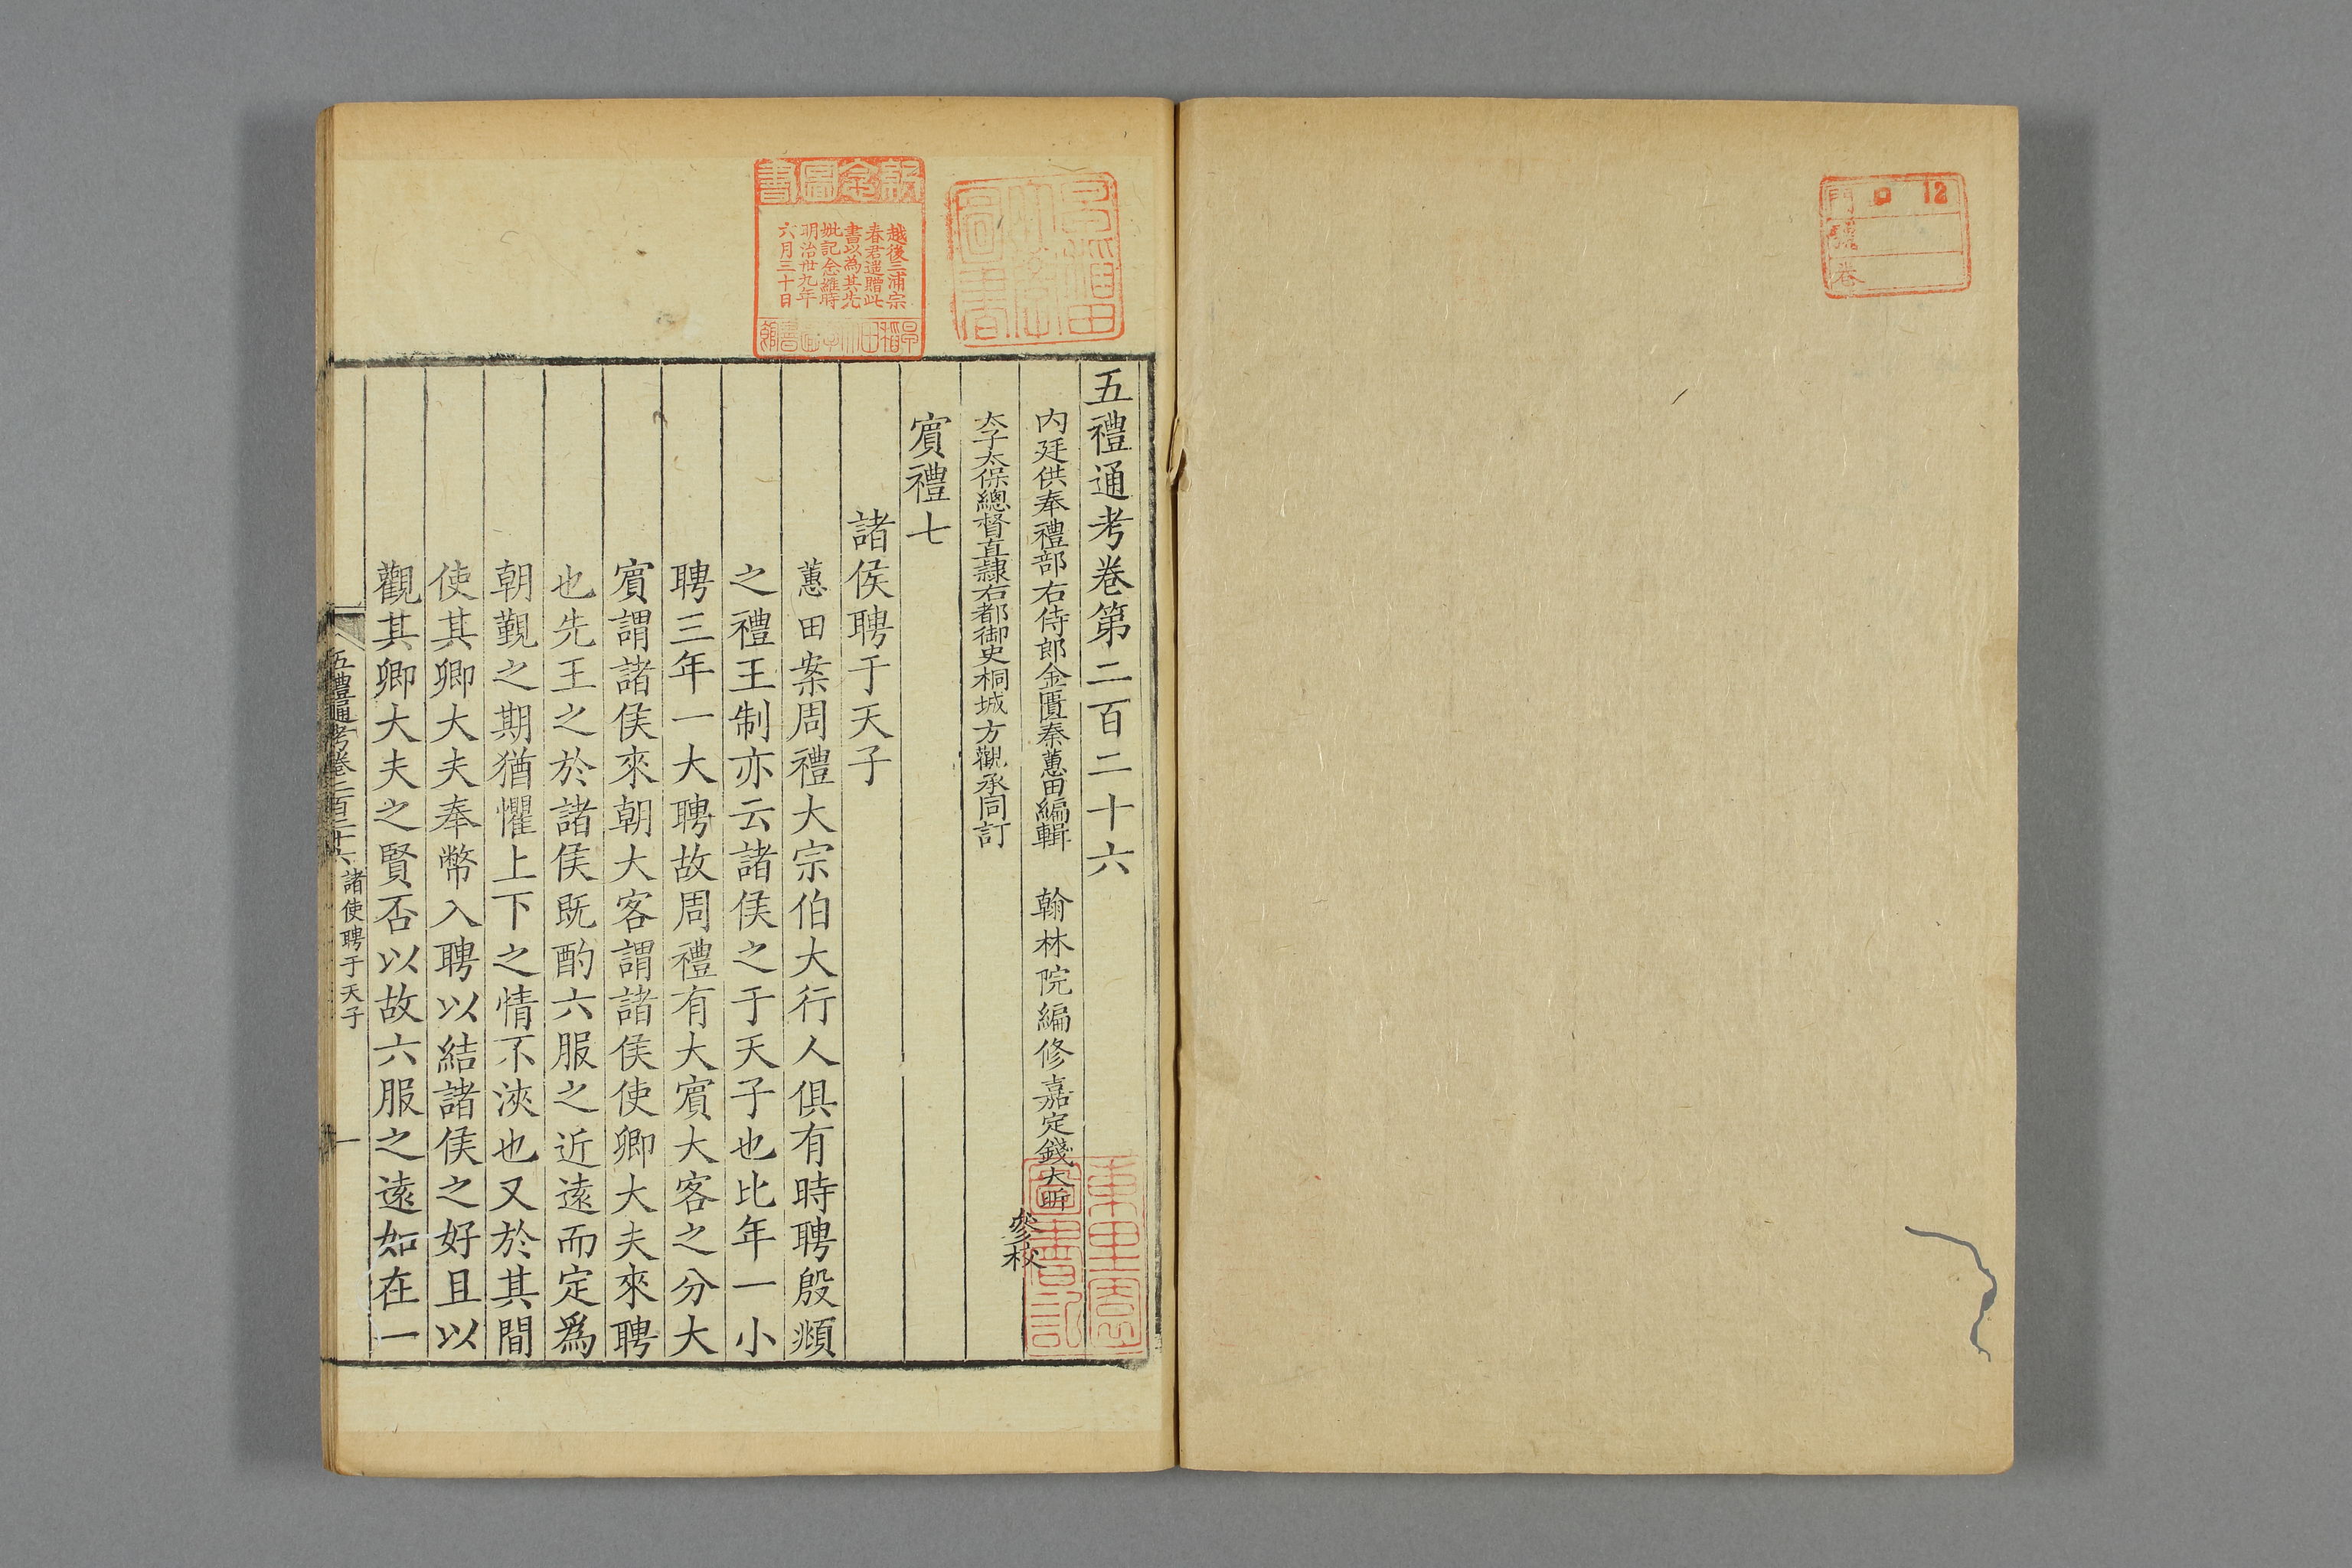 五禮通考卷第二百二十六
内廷供奉禮部右侍郎金匱秦蕙田編輯 翰林院編修嘉定錢大昕
太子太保總督直隸右都御史桐城方觀承同訂 參校
賓禮七
諸侯聘于天子
蕙田案周禮大宗伯大行人俱有時聘殷頫
之禮王制亦云諸侯之于天子也比年一小
聘三年一大聘故周禮有大賓大客之分大
賓謂諸侯來朝大客謂諸侯使卿大夫來聘
也先王之於諸侯既酌六服之近遠而定爲
朝覲之期猶懼上下之情不浹也又於其間
使其卿大夫奉幣入聘以結諸侯之好且以
觀其卿大夫之賢否以故六服之遠如在一
五禮通考卷二百二十六 諸使聘于天子 一
解金圖書
越後三浦宗
春君遥贈此
書以為其先
妣記念維時
明治卅九年
六月三十日
東里園
圖書記
12
門
號
卷